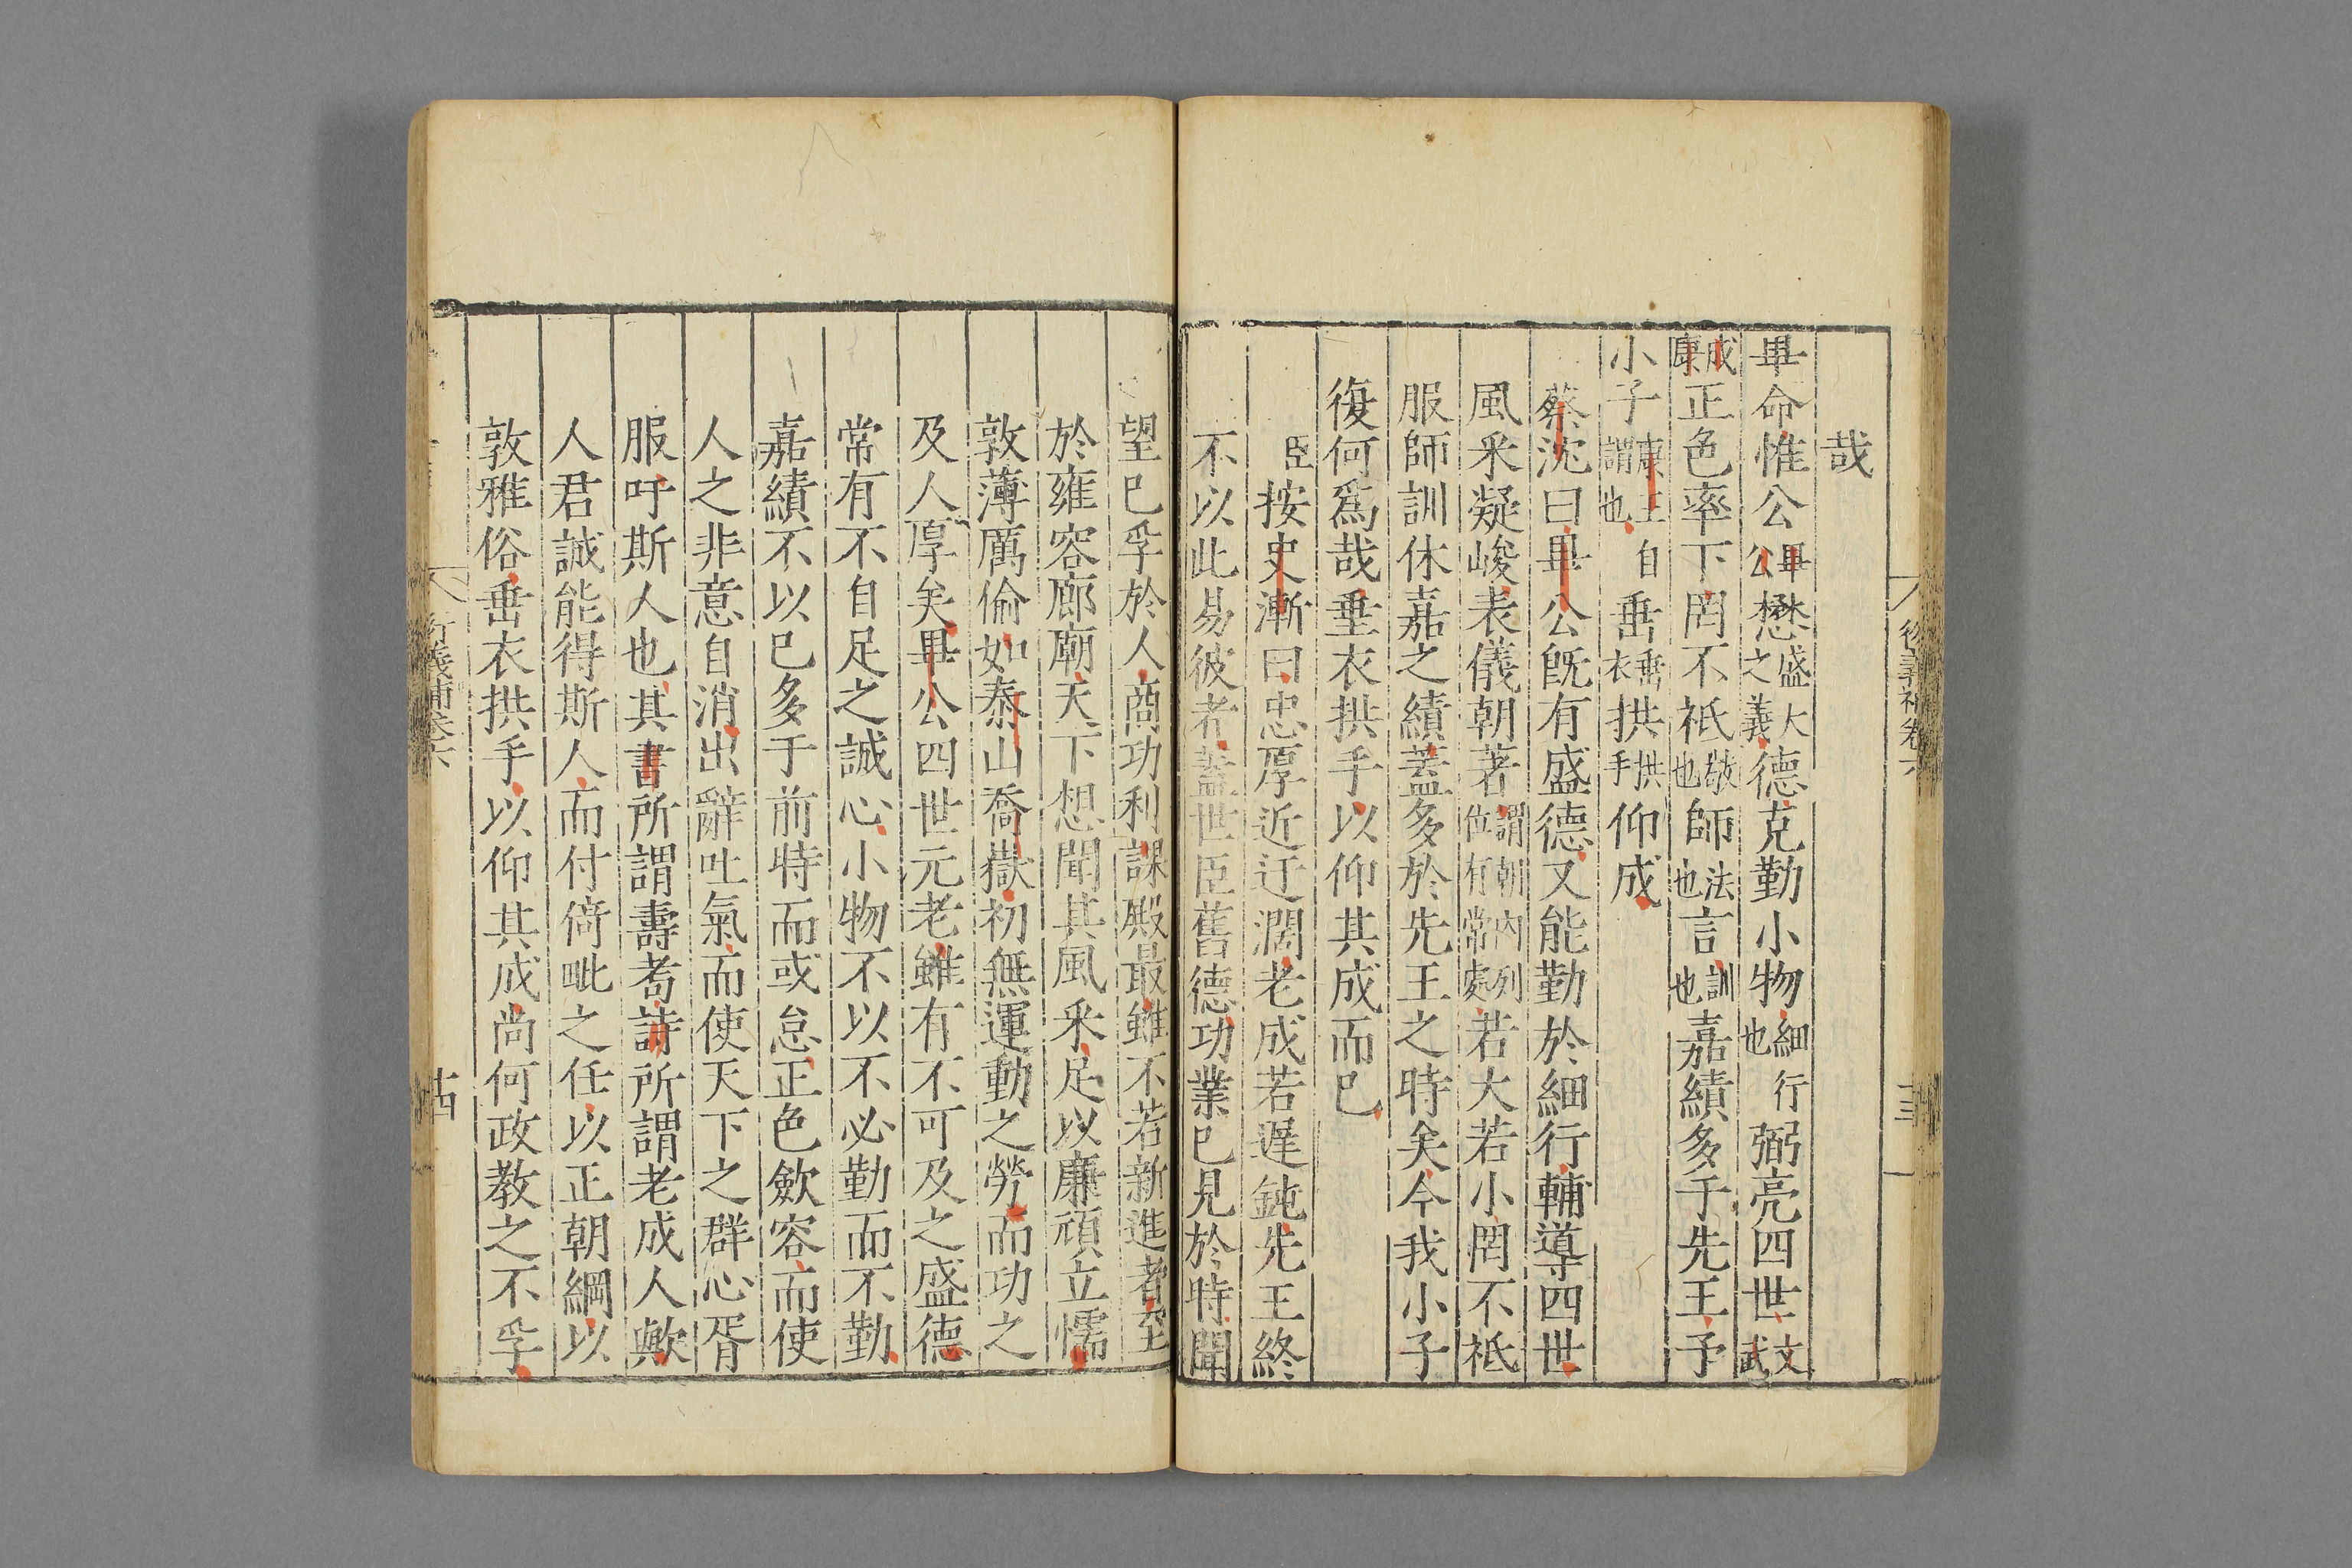 哉
畢命惟公畢公懋盛大之義德克勤小物細行也弼亮四世文武
成康正色率下罔不祗敬也師法也言訓也嘉績多于先王予
小子康王自謂也垂垂衣拱拱手仰成
蔡沈曰畢公旣有盛德又能勤於細行輔導四世
風采凝峻表儀朝著謂朝內列位有常處若大若小罔不祗
服師訓休嘉之績蓋多於先王之時矣今我小子
復何爲哉垂衣拱手以仰其成而已
臣按史漸曰忠厚近迂濶老成若遲鈍先王終
不以此易彼者蓋世臣舊德功業已見於時聞
望已孚於人商功利課殿最雖不若新進者至
於雍容廊廟天下想聞其風采足以廉頑立懦
敦薄厲偷如泰山喬嶽初無運動之勞而功之
及人厚矣畢公四世元老雖有不可及之盛德
常有不自足之誠心小物不以不必勤而不勤
嘉績不以已多于前時而或怠正色歛容而使
人之非意自消出辭吐氣而使天下之群心胥
服吁斯人也其書所謂壽耉詩所謂老成人歟
人君誠能得斯人而付倚毗之任以正朝綱以
敦雅俗垂衣拱手以仰其成尚何政教之不孚
衍義補卷六
十四